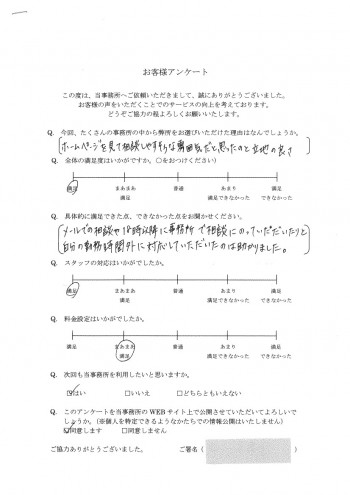 お客様アンケート
この度は、当事務所へご依頼いただきまして、誠にありがとうございました。
お客様の声をいただくことでのサービスの向上を考えております。
どうぞご協力の程よろしくお願いいたします。
Q. 今回、たくさんの事務所の中から弊所をお選びいただけた理由はなんでしょうか。
ホームページを見て相談しやすそうな雰囲気だと思ったのと立地の良さ
Q. 全体の満足度はいかがですか。〇をおつけください)
満足 まあまあ 普通 あまり 満足
満足 満足できなかった できなかった
Q. 具体的に満足できた点、できなかった点をお聞かせください。
メールでの相談や18時以降に事務所で相談にのっていただいたりと
自分の勤務時間外に対応していただいたのは助かりました。
Q. スタッフの対応はいかがでしたか。
満足 まあまあ 普通 あまり 満足
満足 満足できなかった できなかった
Q. 料金設定はいかがでしたか。
満足 まあまあ 普通 あまり 満足
満足 満足できなかった できなかった
Q. 次回も当事務所を利用したいと思いますか。
☑はい □いいえ □どちらともいえない
Q. このアンケートを当事務所のWEBサイト上で公開させていただいてよろしいで
しょうか。(※個人を特定できるようなかたちでの情報公開はいたしません)
☑同意します □同意しません
ご協力ありがとうございました。 ご署名(